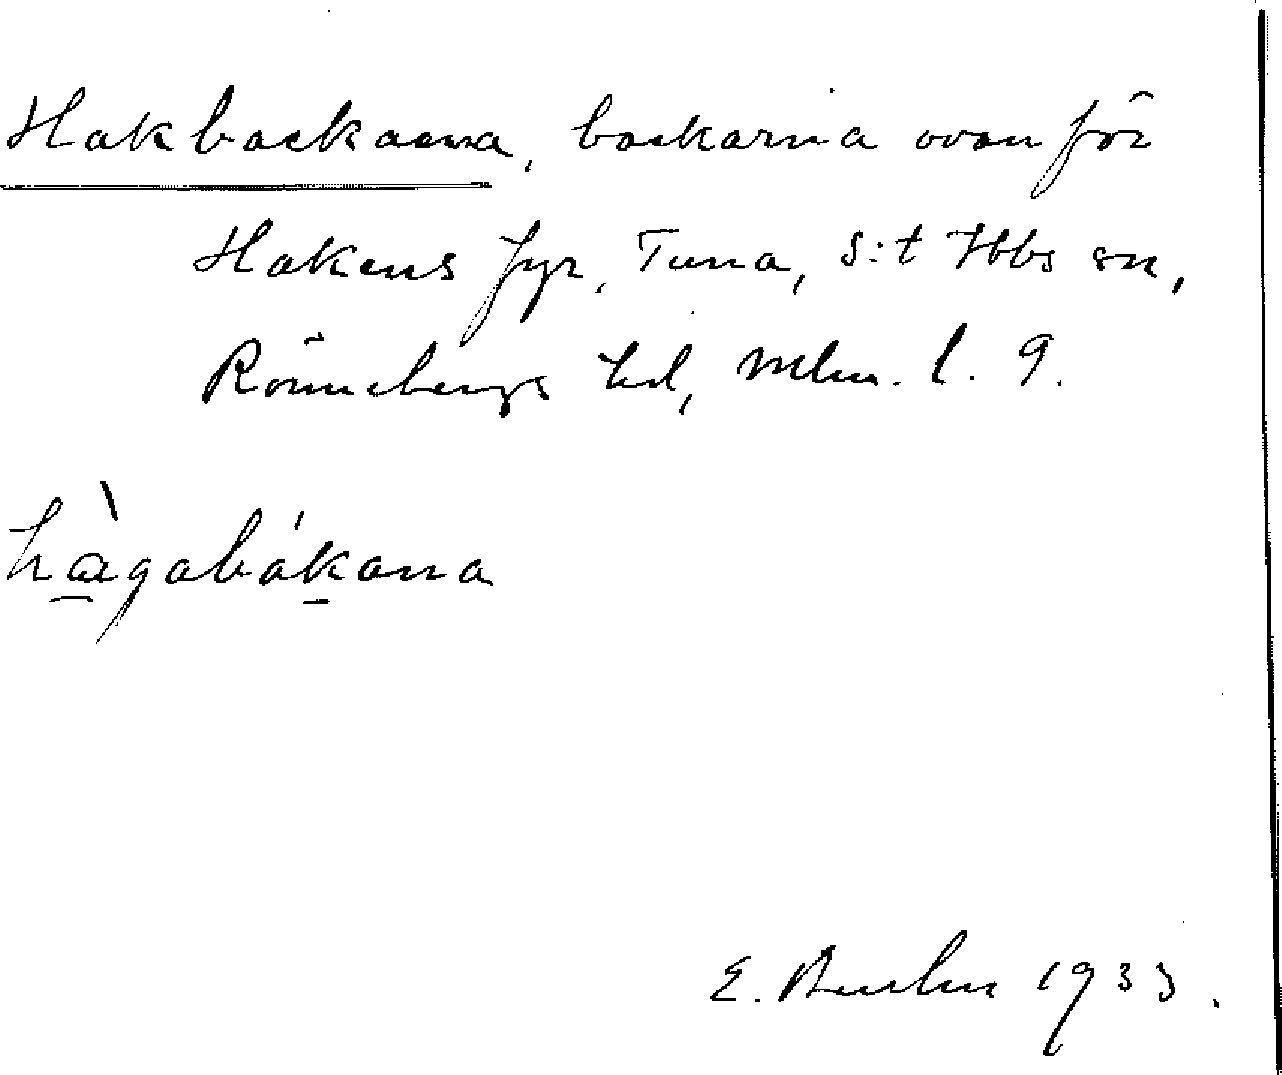 Hakbackarna, backarna ovan för
Hakens fyr, Tuna, S:t Ibbs sn,
Rönnebergs hd, Mlm. l. 9.
hàgabákana
E. 1933.